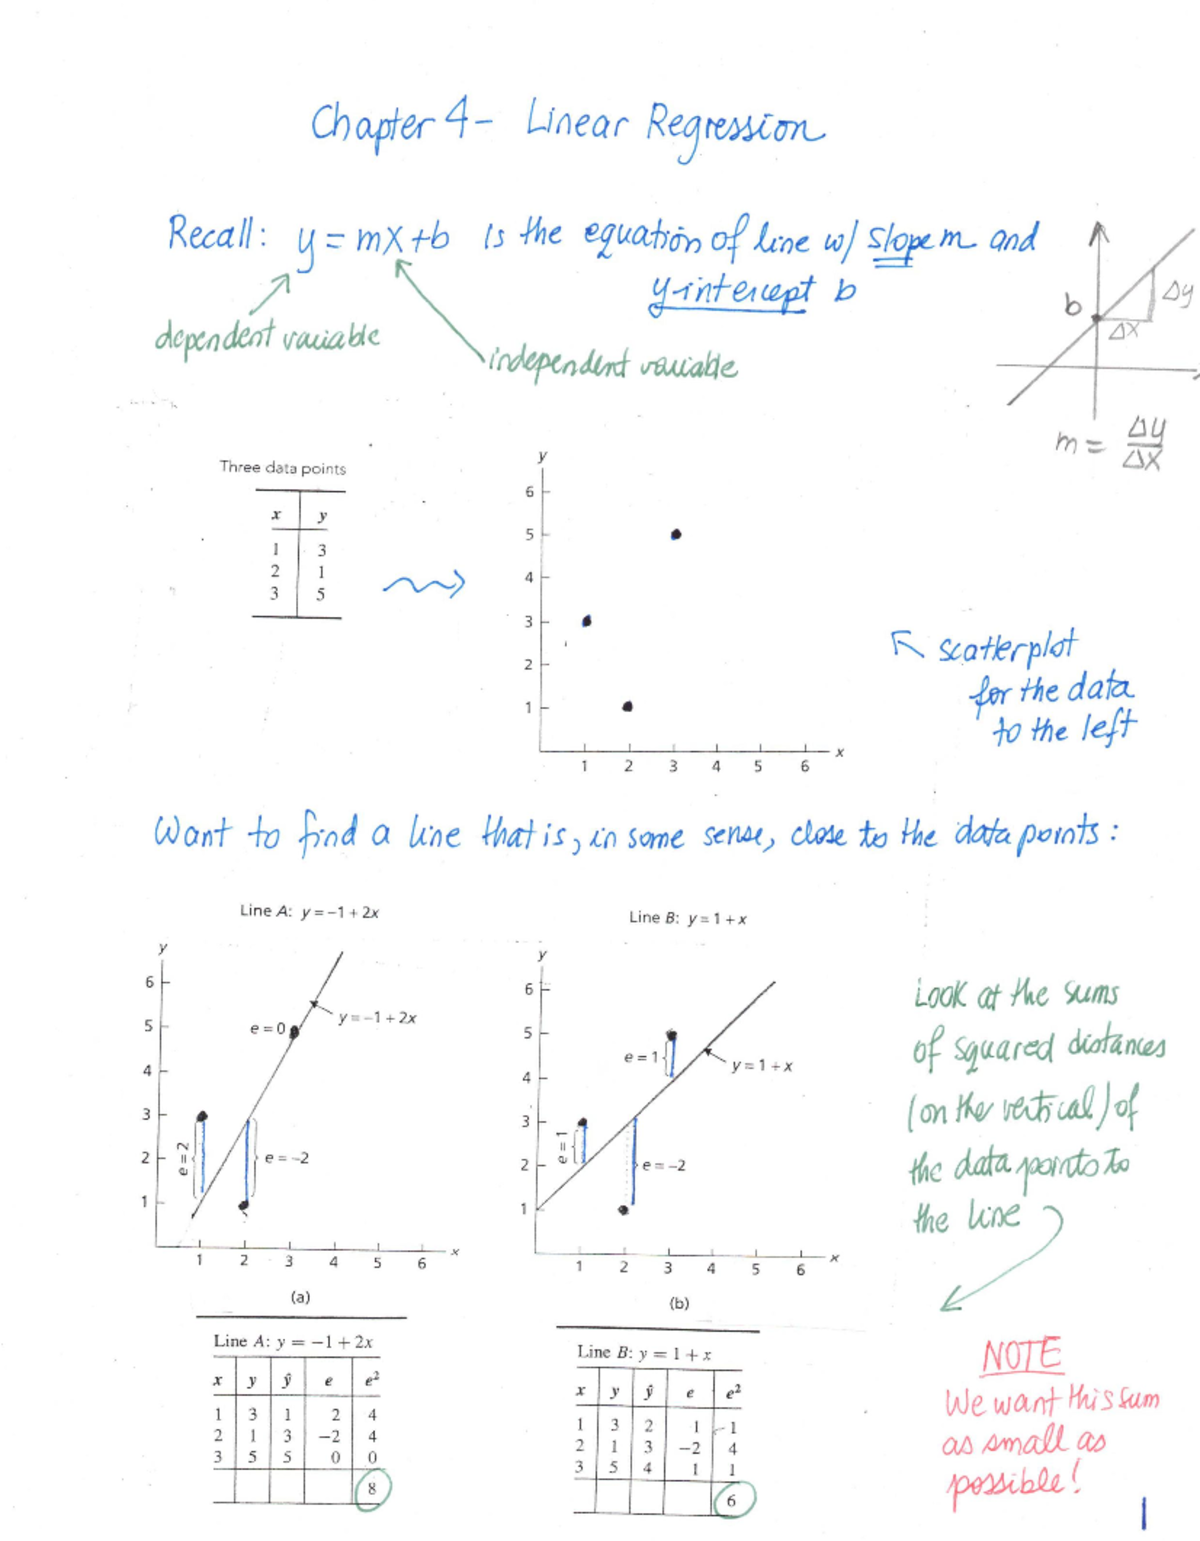 Chapter 4 - Linear Regression
Recall: y = mx + b is the equation of line w/ slope m and
y-intercept b
dependent variable
independent variable
b
Δy
Δx
m = Δy/Δx
Three data points
x y
1 3
2 1
3 5
y
6
5
4
3
2
1
1 2 3 4 5 6 x
scatterplot
for the data
to the left
Want to find a line that is, in some sense, close to the data points:
Line A: y = -1 + 2x
y
6
5
4
3
2
1
e = 0
y = -1 + 2x
e = 2
e = -2
1 2 3 4 5 6 x
(a)
Line B: y = 1 + x
y
6
5
4
3
2
1
e = 1
y = 1 + x
e = 1
e = -2
1 2 3 4 5 6 x
(b)
Look at the sums
of squared distances
(on the vertical) of
the data points to
the line
Line A: y = -1 + 2x
x y ŷ e e²
1 3 1 2 4
2 1 3 -2 4
3 5 5 0 0
8
Line B: y = 1 + x
x y ŷ e e²
1 3 2 1 1
2 1 3 -2 4
3 5 4 1 1
6
NOTE
We want this sum
as small as
possible!
1